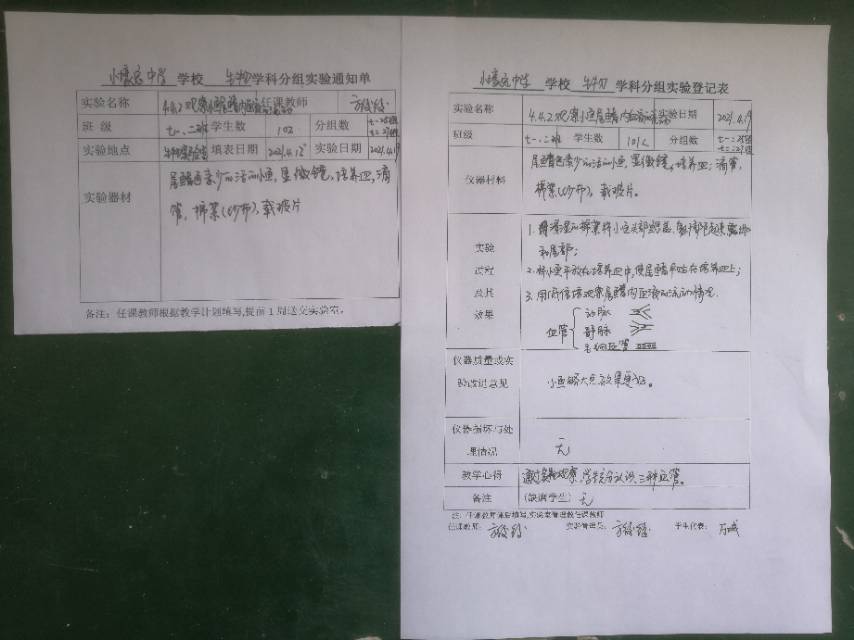 中学 学校 生物 学科分组实验通知单
实验名称 4.4.2观察小鱼尾鳍内 任课教师
班 级 七一、二班 学生数 102 分组数
实验地点 生物实验室 填表日期 2021.4.12 实验日期 2021.4.19
实验器材 尾鳍色素少的活的小鱼,显微镜,培养皿,滴
管,棉絮(纱布),载玻片
备注:任课教师根据教学计划填写,提前1周送交实验室。
中学 学校 生物 学科分组实验登记表
实验名称 4.4.2观察小鱼尾鳍内 实验日期 2021.4.19
班级 七一、二班 学生数 102 分组数
仪器材料 尾鳍色素少的活的小鱼,显微镜,培养皿,滴管,
棉絮(纱布),载玻片。
实验
过程
及其
效果
1. 用浸湿的棉絮将小鱼头部
和尾部;
2. 将小鱼平放在培养皿中,使尾鳍平贴在培养皿上;
3. 用低倍镜观察尾鳍内血液的流动情况.
血管 动脉
静脉
毛细血管
仪器质量或实
验改进意见
小鱼略大点效果
仪器损坏与处
理情况
无
教学心得 通过实验观察,学生充分认识三种血管。
备注 (缺课学生) 无
注:任课教师课后填写,实验室管理教任课教师
任课教师: 实验管理员: 学生代表: